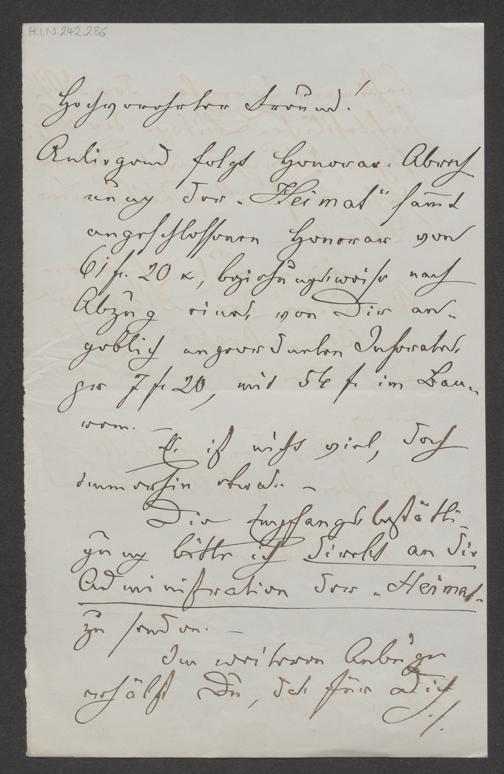 H.I.N. 242.286
Hochverehrter Freund!
Anliegend folgt Honorar-Abrech
nung der „Heimat" samt
angeschlossenem Honorar von
61 fl. 20 x, beziehungsweise nach
Abzug eines von Dir an-
geblich angeordneten Inserates
per 7 fl 20, mit 54 fl im Baa-
rem. —
Es ist nicht viel, doch
immerhin etwas. —
Die Empfangsbestätti-
gung bitte ich direkt an die
Administration der „Heimat"
zu senden. —
Im weiteren Anbuge
erhälst Du, das für Dich
./.